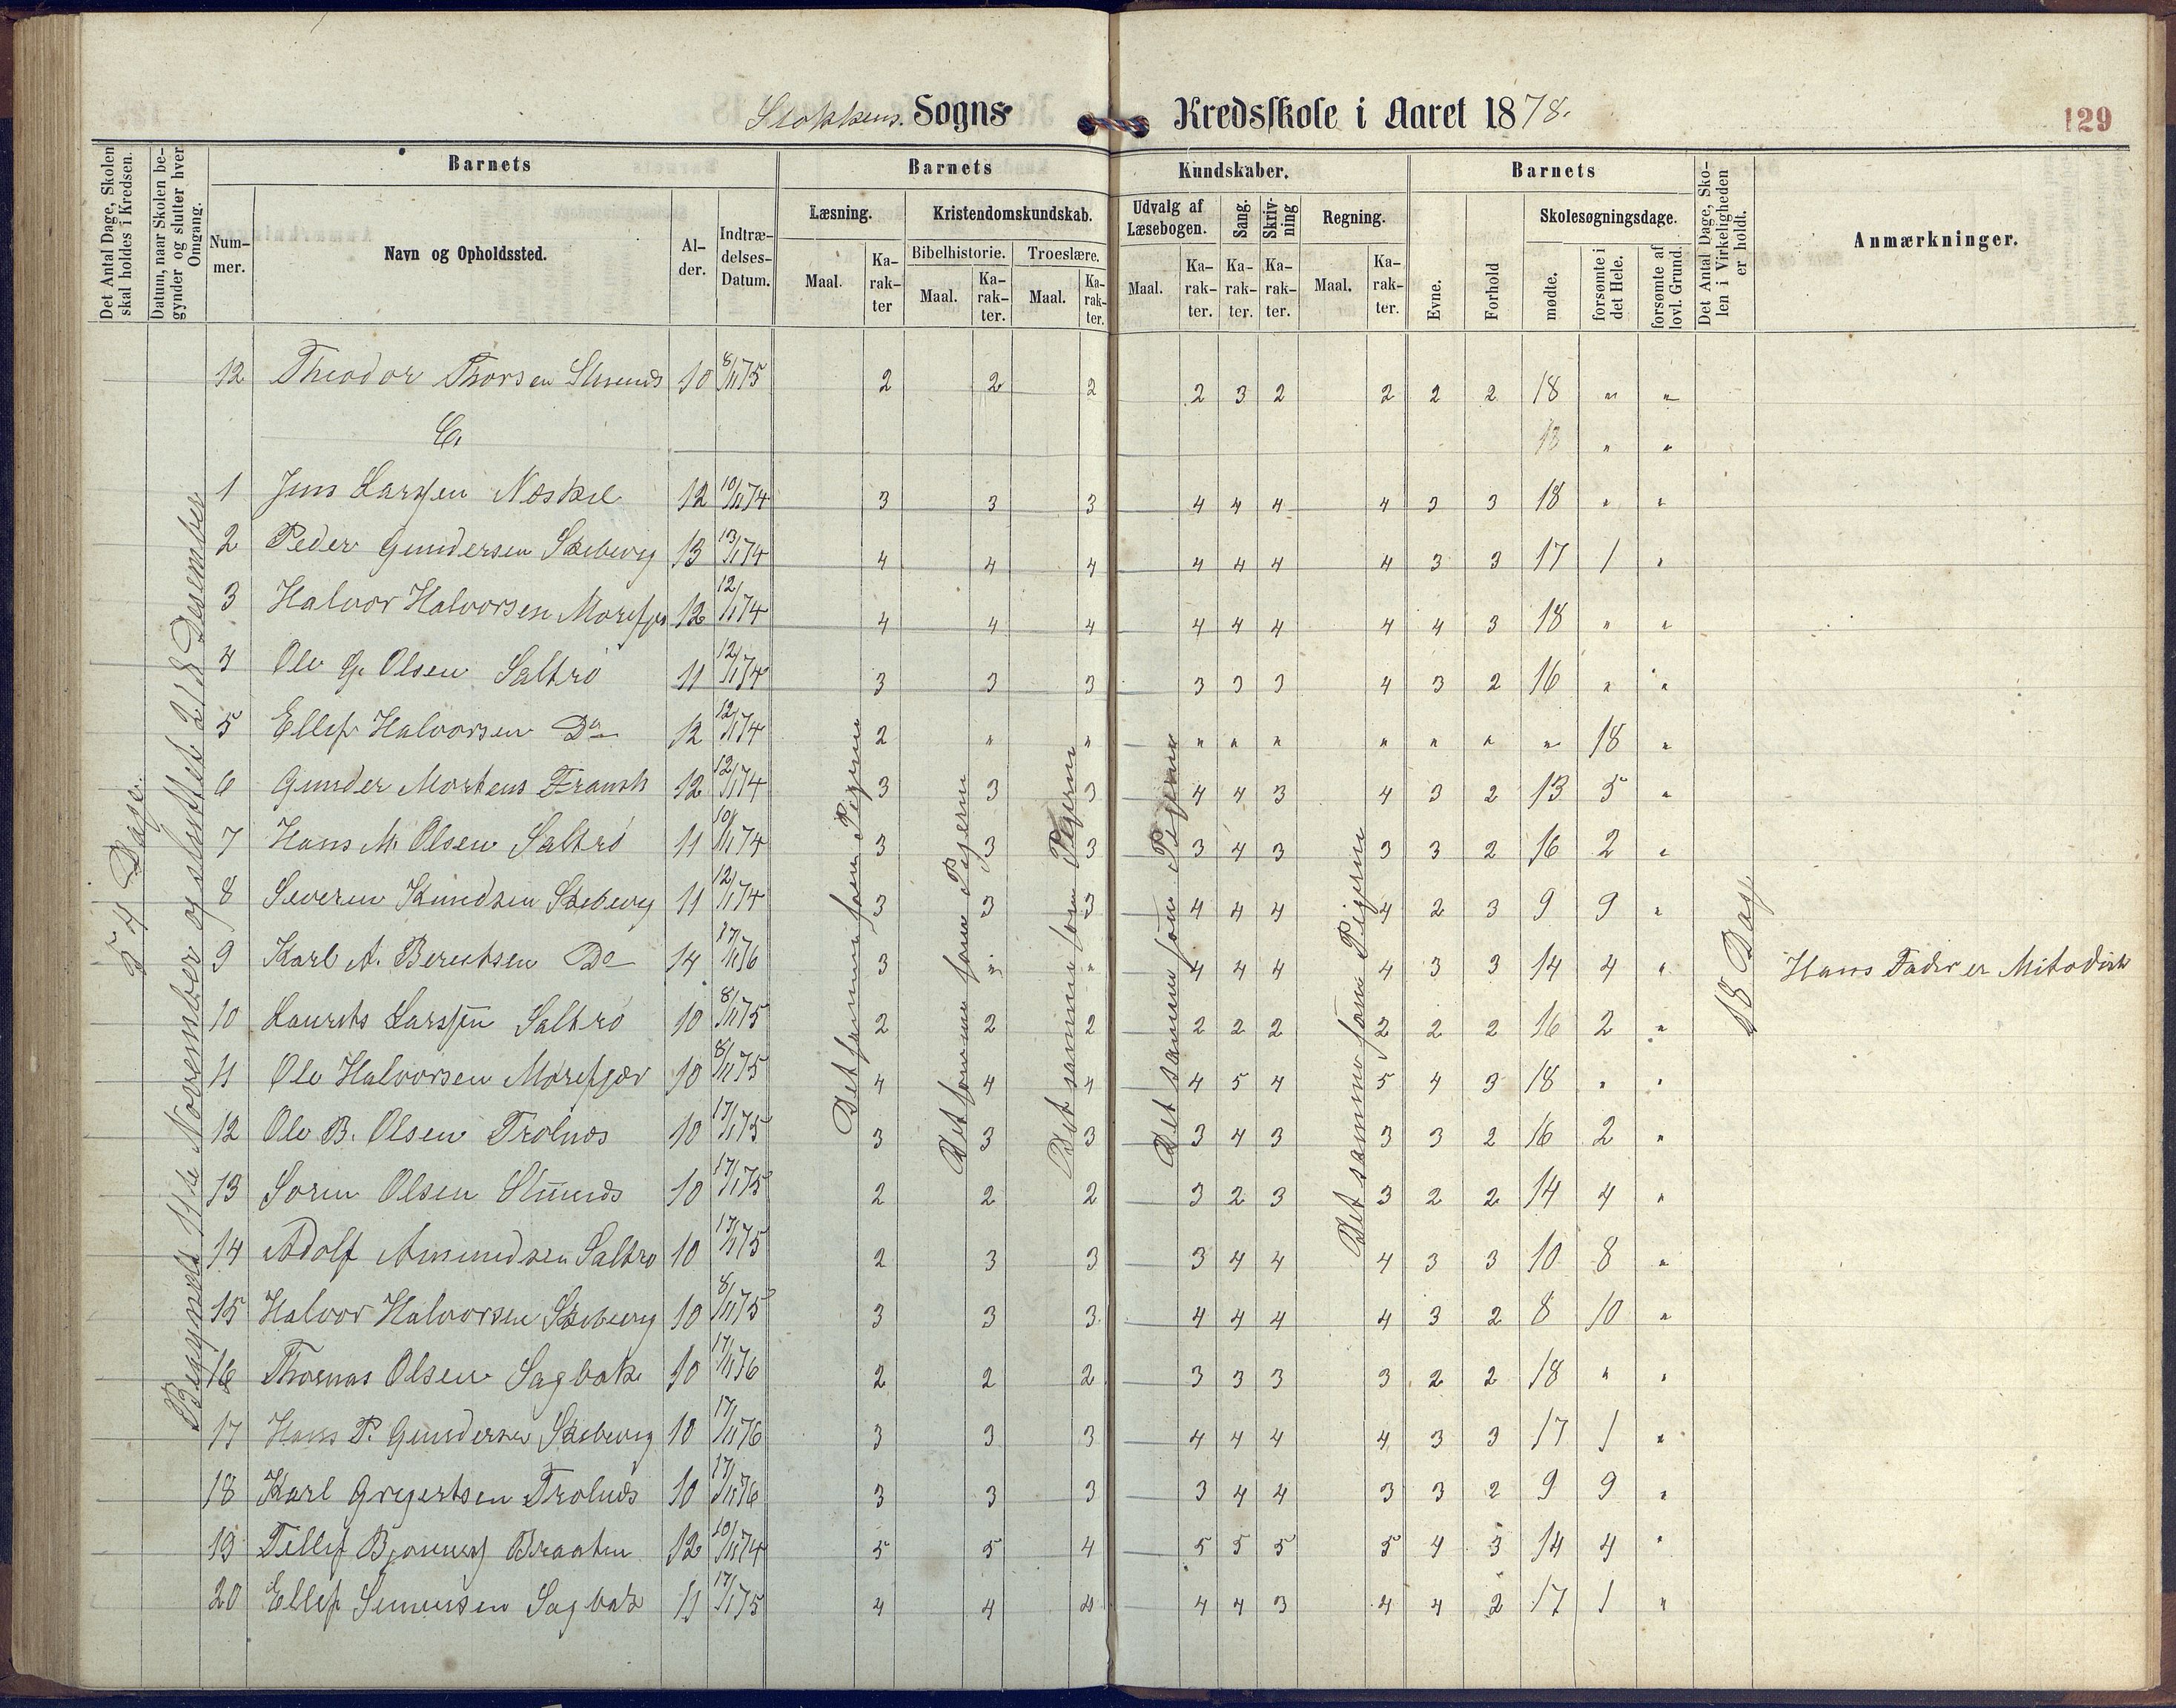 Stokkens Sogns Kredsskole i Aaret 1878.
129
Det Antal Dage, Skolen skal holdes i Kredsen.
Datum, naar Skolen begynder og slutter hver Omgang.
Barnets
Nummer.
Navn og Opholdssted.
Alder.
Indtrædelses-Datum.
Barnets Kundskaber.
Læsning.
Maal.
Karakter
Kristendomskundskab.
Bibelhistorie.
Maal.
Karakter.
Troeslære.
Maal.
Karakter.
Udvalg af Læsebogen.
Maal.
Karakter.
Sang.
Karakter.
Skrivning
Karakter.
Regning.
Maal.
Karakter.
Barnets
Evne.
Forhold
Skolesøgningsdage.
mødte.
forsømte i det Hele.
forsømte af lovl. Grund.
Det Antal Dage, Skolen i Virkeligheden er holdt.
Anmærkninger.
54 Dage.
November og sluttet 21de Desember
Det samme som Pigerne
Det samme som Pigerne
Det samme som Pigerne
Det samme som Pigerne
Det samme som Pigerne
18 Dag.
12 Theodor Thorsen 10 8/11 75 2 2 2 2 3 2 2 2 2 18 " "
18 " "
1 Jens Larssen Næskil 12 10/11 74 3 3 3 4 4 4 4 3 3 18 " "
2 Peder Gundersen Skibevig 13 13/1 74 4 4 4 4 4 4 4 3 3 17 1 "
3 Halvor Halvorsen Morefjær 12 12/1 74 4 4 4 4 4 4 4 4 3 18 " "
4 Ole G. Olsen Saltrø 11 12/1 74 3 3 3 3 3 3 4 3 2 16 " "
5 Ellef Halvorsen Do 12 12/1 74 2 " " " " " " " " " 18 "
6 Gunder Mortens 12 12/1 74 3 3 3 4 4 3 4 3 2 13 5 "
7 Hans M. Olsen Saltrø 11 10/11 74 3 3 3 3 4 3 3 3 2 16 2 "
8 Severin Knudsen Skibevig 11 12/1 74 3 3 3 4 4 4 4 2 3 9 9 "
9 Karl A. Berentsen Do 14 17/11 76 3 " " 4 4 4 4 3 3 14 4 " Hans Fader er Mitodist
10 Laurits Larssen Saltrø 10 8/11 75 2 2 2 2 2 2 2 2 2 16 2 "
11 Ole Halvorsen Morefjær 10 8/11 75 4 4 4 4 5 4 5 4 3 18 " "
12 Ole B. Olsen Trolnæs 10 17/1 75 3 3 3 3 4 3 3 3 2 16 2 "
13 Søren Olsen 10 17/1 75 2 2 2 3 2 3 3 2 2 14 4 "
14 Adolf Amundsen Saltrø 10 17/1 75 2 3 3 3 4 4 4 3 3 10 8 "
15 Halvor Halvorsen Skibevig 10 8/11 75 3 3 3 4 4 4 4 3 2 8 10 "
16 Thomas Olsen Sagbak 10 17/11 76 2 2 2 3 3 3 3 2 2 18 " "
17 Hans P. Gundersen Skibevig 10 17/11 76 3 3 3 4 4 4 4 3 3 17 1 "
18 Karl Gregertsen Trolnæs 10 17/11 76 3 3 3 3 4 4 3 3 2 9 9 "
19 Tellef Braaten 12 10/11 74 5 5 4 5 5 5 5 4 3 14 4 "
20 Ellef Simensen Sagbak 11 17/1 75 4 4 4 4 4 3 4 4 2 17 1 "